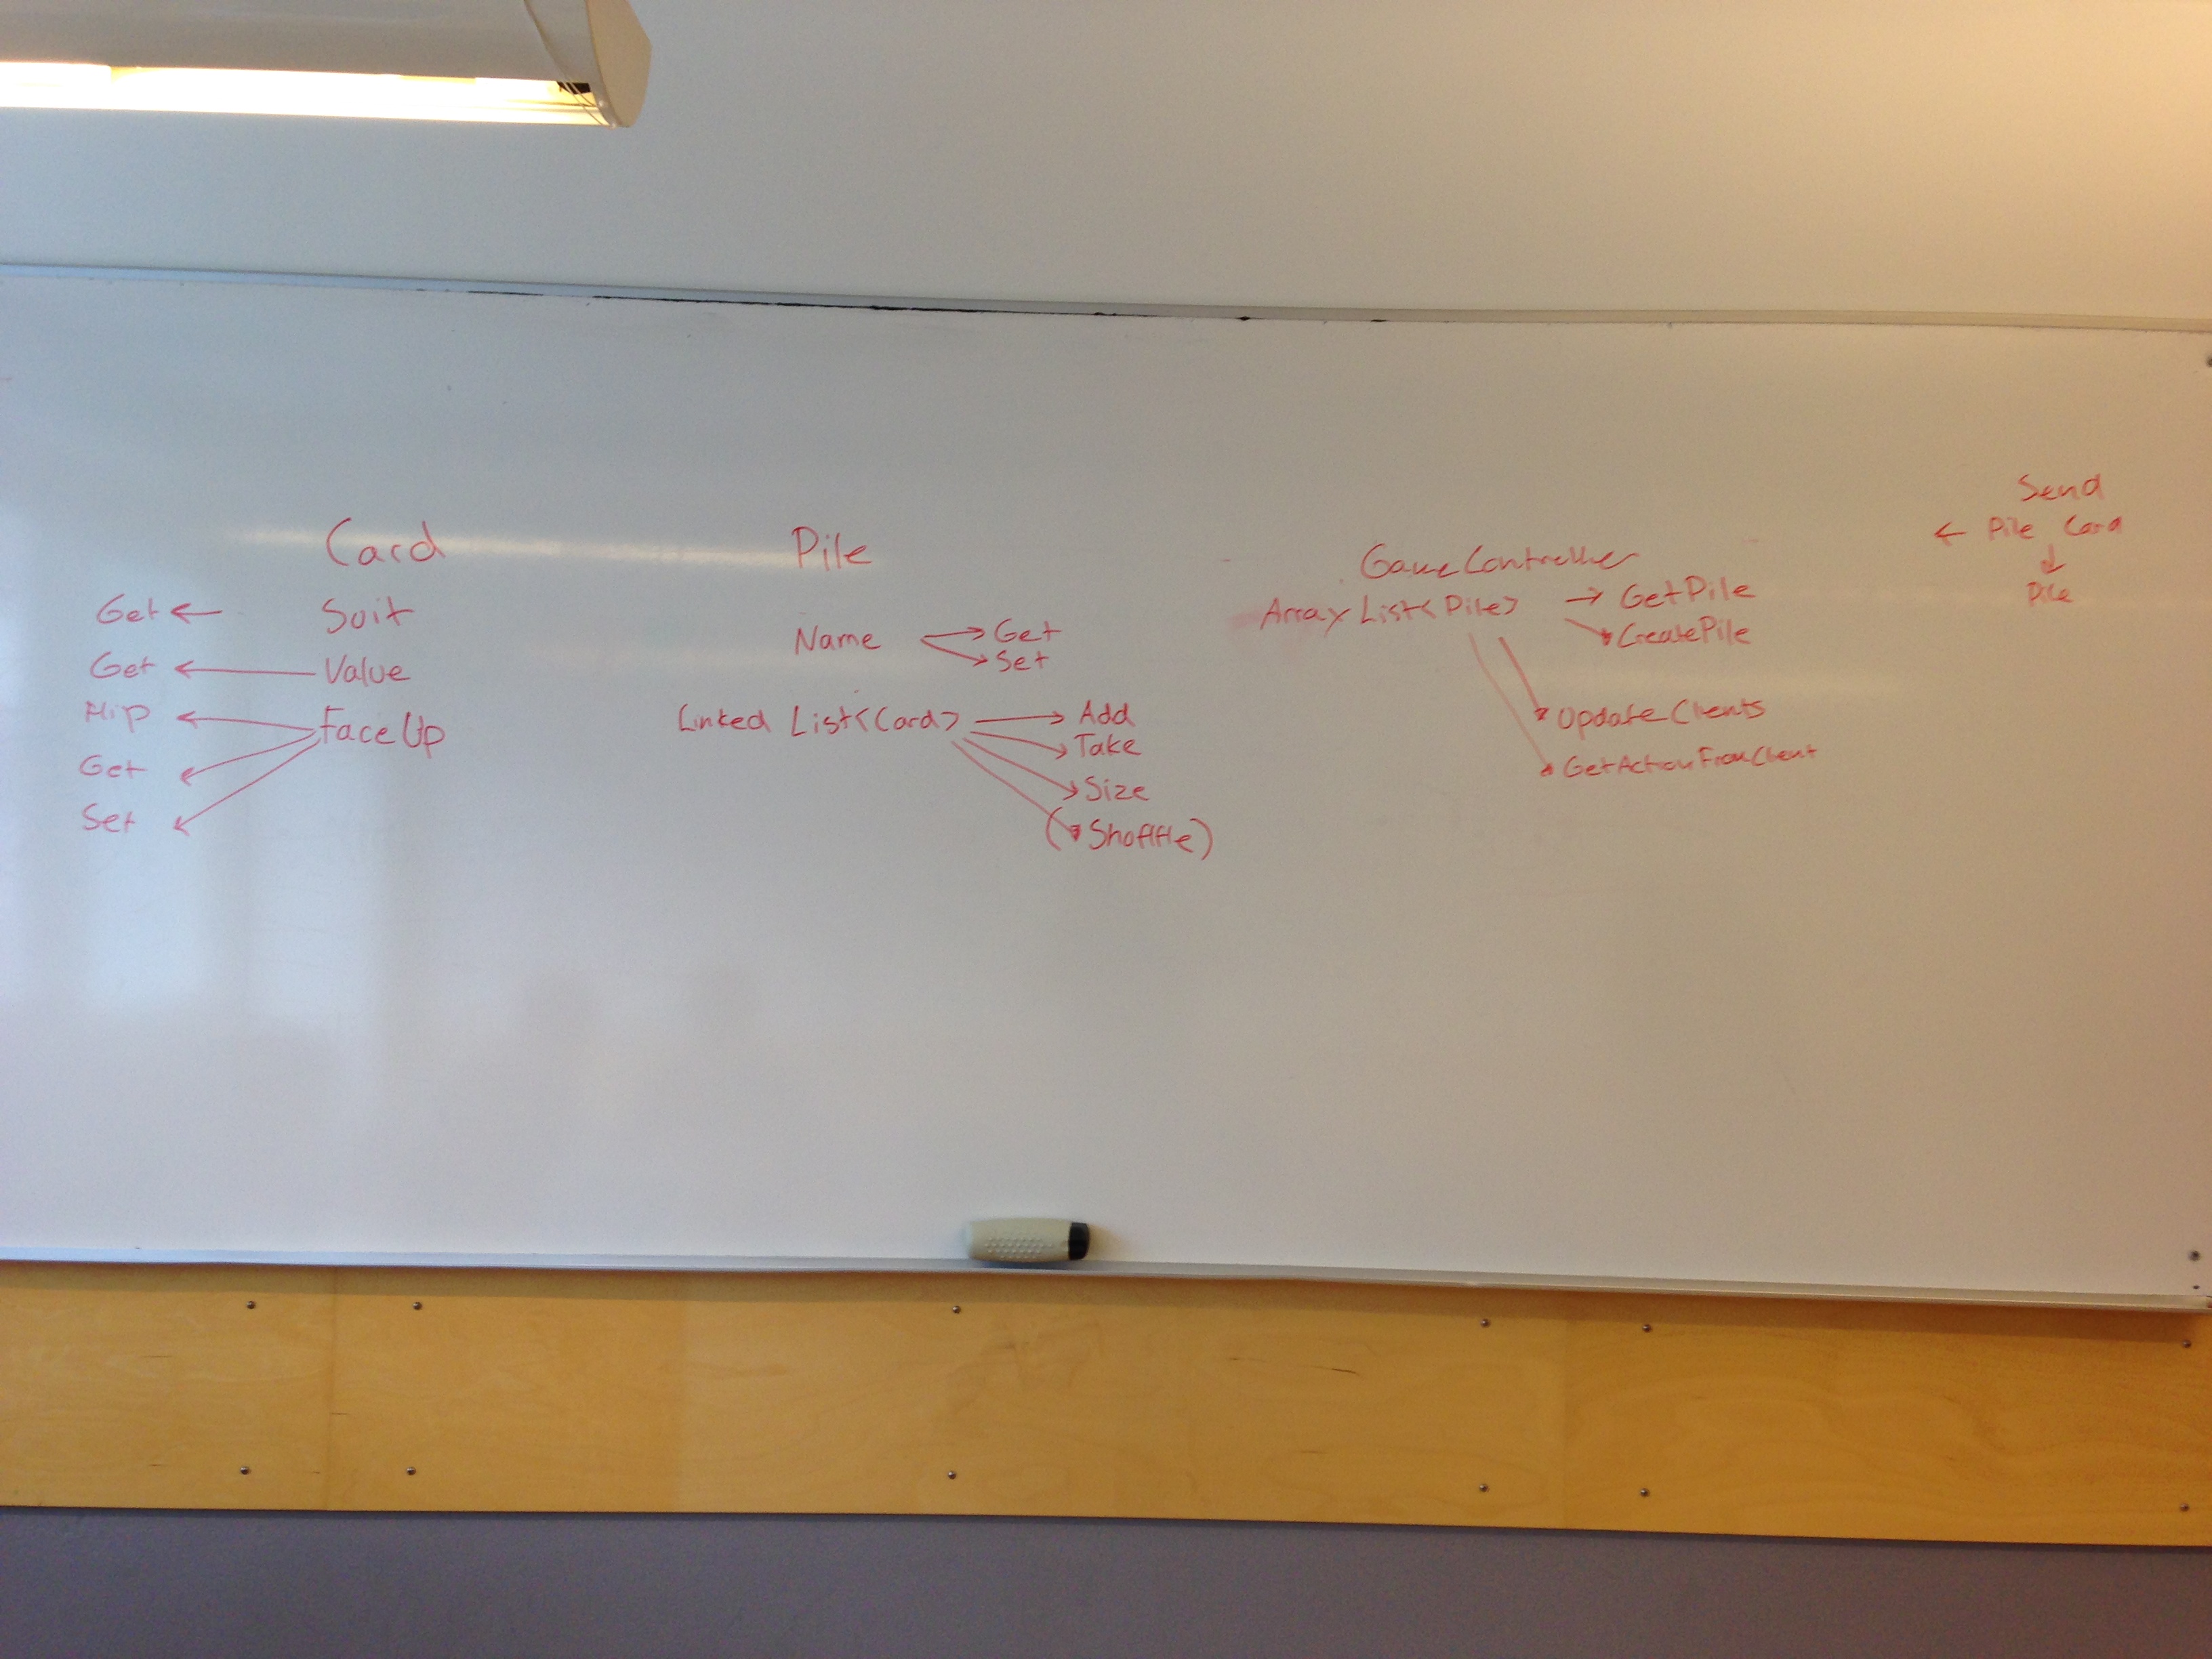 Card
Get ← Suit
Get ← Value
Flip ← FaceUp
Get
Set
Pile
Name → Get
→ Set
Linked List<Card> → Add
→ Take
→ Size
(→ Shofffle)
GameController
Array List<Pile> → GetPile
→ CreatePile
→ Update Clients
→ GetActionFromClient
Send
← Pile Card
↓
Pile